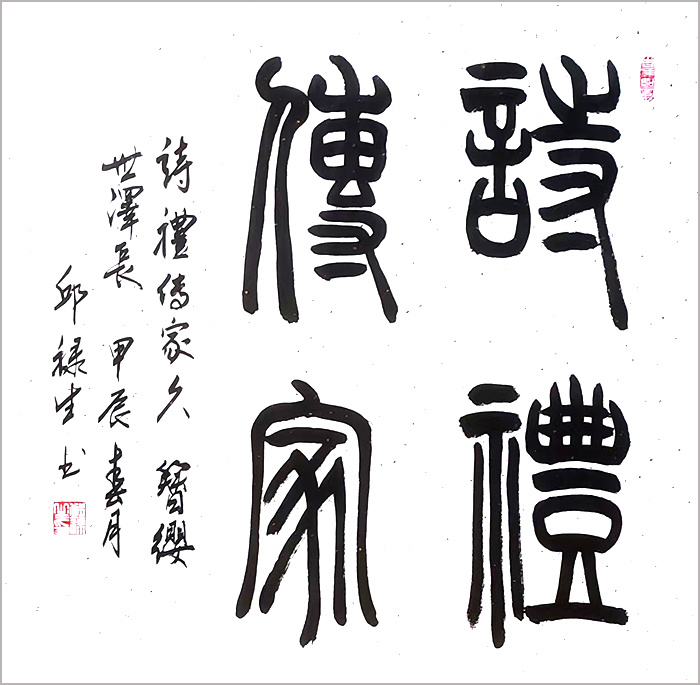 詩禮
傳家
詩禮傳家久 簪纓
世澤長 甲辰春月
邱禄生书